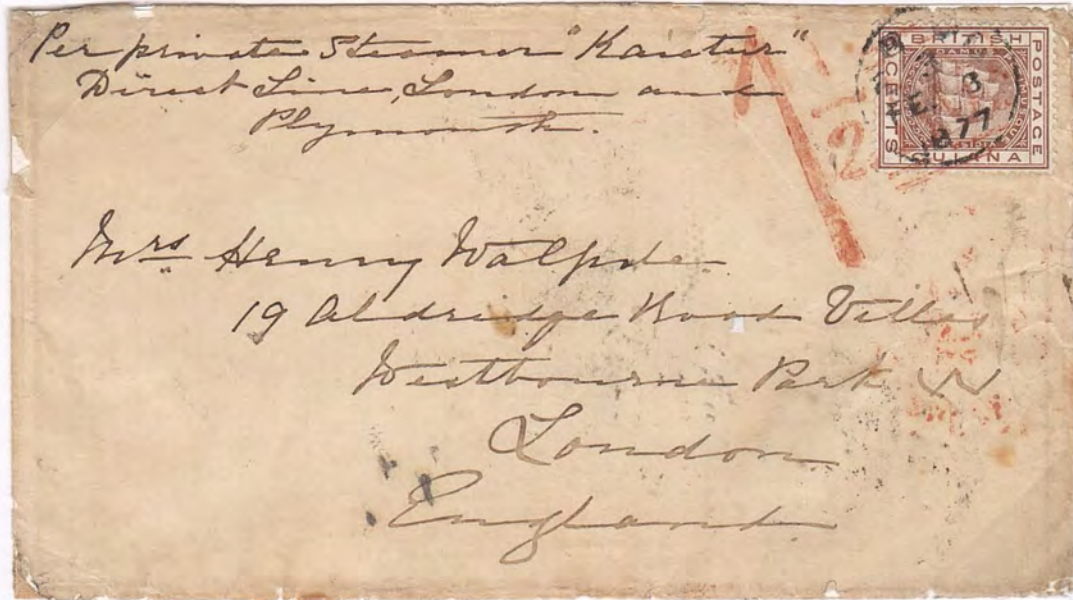 Per private Steamer "Kaieteur"
Direct Line, London and
Plymouth.
BRITISH
POSTAGE
GUIANA
CENTS
DAMUS
FE 3
1877
1
2
Mrs Henry Walpole
19 Aldridge Road Villas
Westbourne Park W
London
England